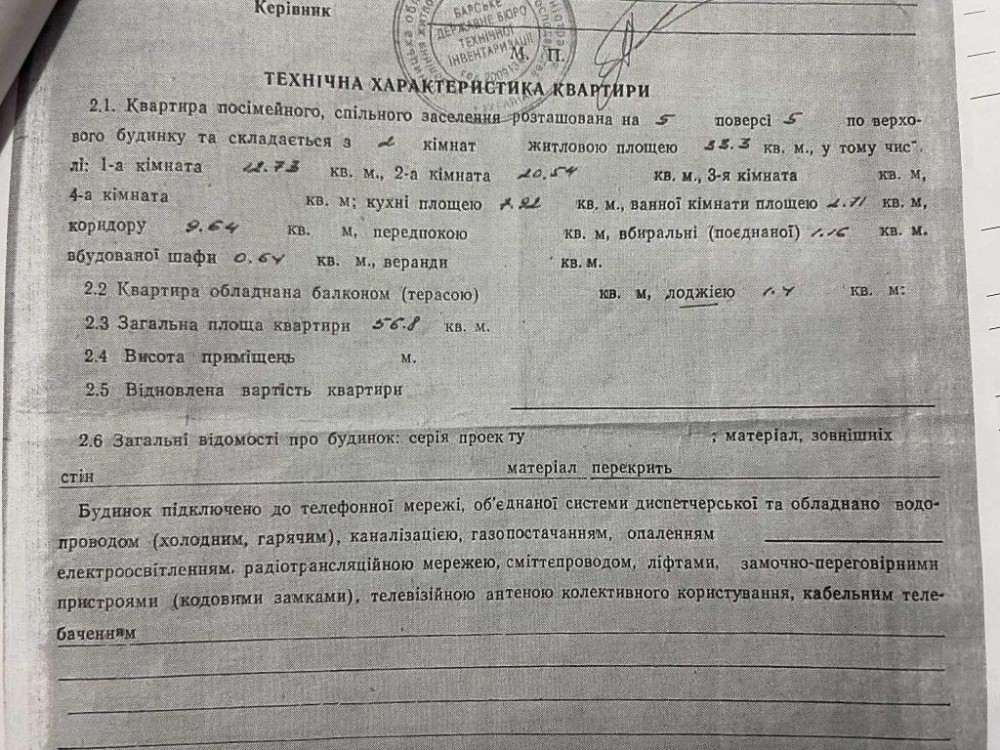 Керівник
БАРСЬКЕ
ДЕРЖАВНЕ БЮРО
ТЕХНІЧНОЇ
ІНВЕНТАРИЗАЦІЇ
М. П.
ТЕХНІЧНА ХАРАКТЕРИСТИКА КВАРТИРИ
2.1. Квартира посімейного, спільного заселення розташована на 5 поверсі 5 по верхо-
вого будинку та складається з 2 кімнат житловою площею 33.3 кв. м., у тому чис-
лі: 1-а кімната 12.73 кв. м., 2-а кімната 20.54 кв. м., 3-я кімната кв. м,
4-а кімната кв. м; кухні площею 7.92 кв. м., ванної кімнати площею 2.71 кв. м,
коридору 9.64 кв. м, передпокою кв. м, вбиральні (поєднаної) 1.16 кв. м.
вбудованої шафи 0.64 кв. м., веранди кв. м.
2.2 Квартира обладнана балконом (терасою) кв. м, лоджією 1.4 кв. м:
2.3 Загальна площа квартири 56.8 кв. м.
2.4 Висота приміщень м.
2.5 Відновлена вартість квартири
2.6 Загальні відомості про будинок: серія проек ту ; матеріал, зовнішніх
стін матеріал перекрить
Будинок підключено до телефонної мережі, об'єднаної системи диспетчерської та обладнано водо-
проводом (холодним, гарячим), каналізацією, газопостачанням, опаленням
електроосвітленням. радіотрансляційною мережею, сміттєпроводом, ліфтами, замочно-переговірними
пристроями (кодовими замками), телевізійною антеною колективного користування, кабельним теле-
баченням